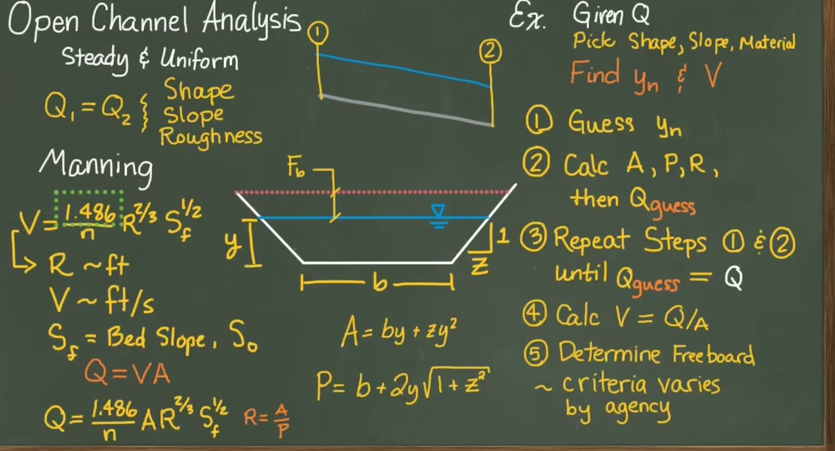 Open Channel Analysis
Steady & Uniform
Q₁ = Q₂ { Shape
Slope
Roughness
Manning
V = 1.486/n R^2/3 S_f^1/2
R ~ ft
V ~ ft/s
S_f = Bed Slope, S₀
Q = VA
Q = 1.486/n A R^2/3 S_f^1/2 R = A/P
① ②
F_b
y
b
1
z
A = by + zy²
P = b + 2y√(1 + z²)
Ex. Given Q
Pick Shape, Slope, Material
Find y_n & V
① Guess y_n
② Calc A, P, R,
then Q_guess
③ Repeat Steps ① & ②
until Q_guess = Q
④ Calc V = Q/A
⑤ Determine Freeboard
~ criteria varies
by agency